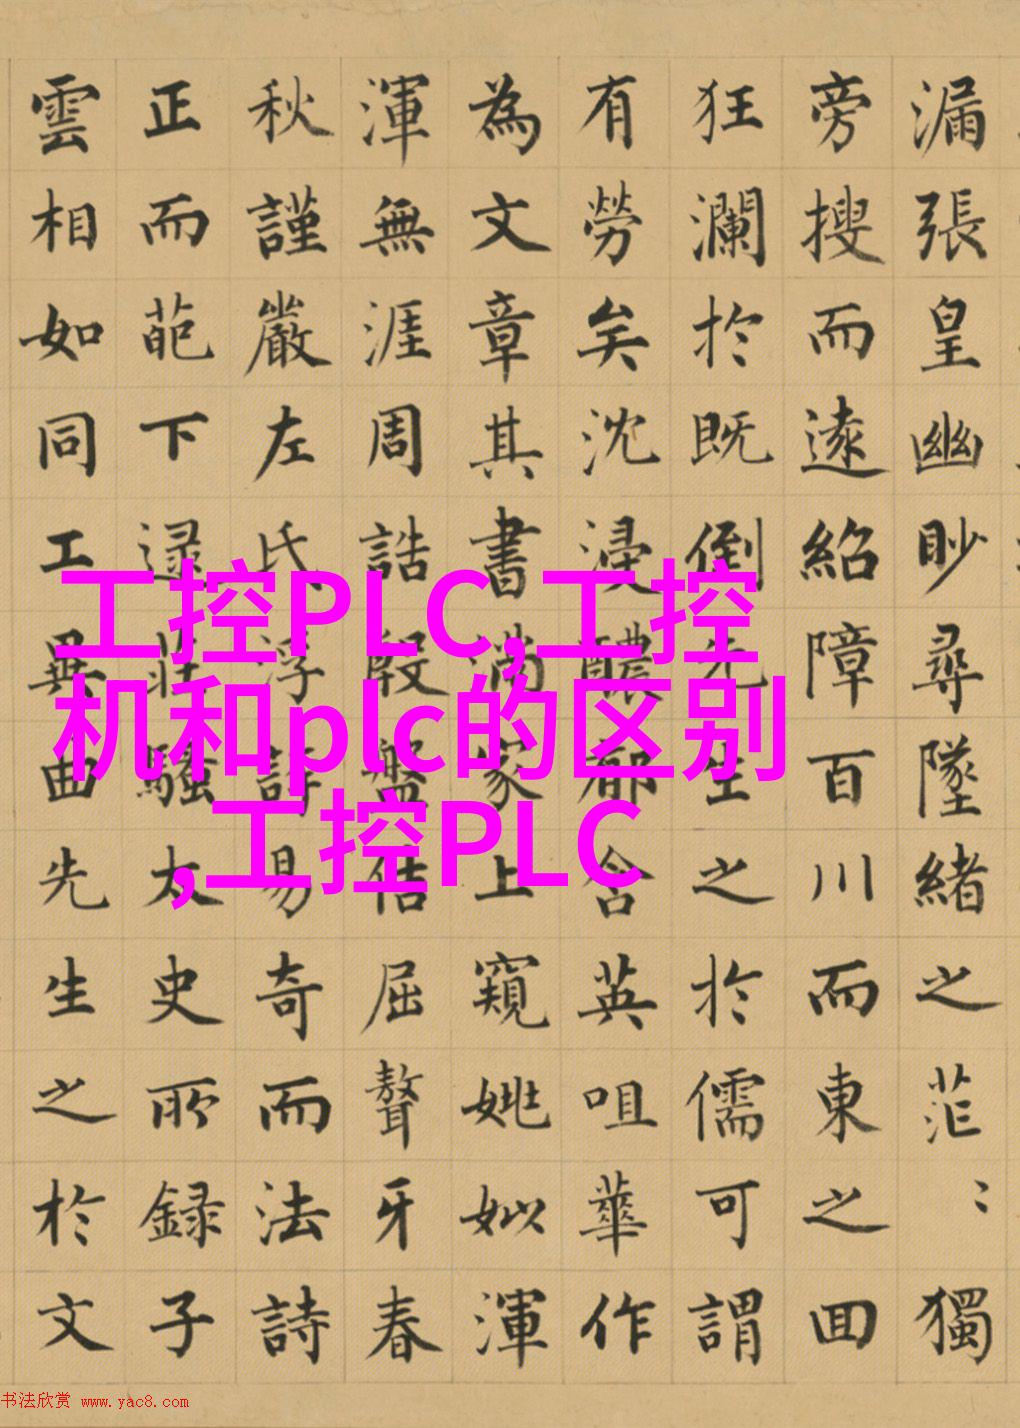 漏張皇幽眇尋墜緒之茫〻獨
旁搜而遠紹障百川而東之回
狂瀾於既倒先生之於儒可謂
有勞矣沈浸醲郁含英咀華作
為文章其書滿家上窺姚姒渾
渾無涯周誥殷盤佶屈聱牙春
秋謹嚴左氏浮誇易奇而法詩
正而葩下逮莊騷太史所録子
雲相如同工異曲先生之於文
工控PLC,工控
机和plc的区别
,工控PLC
书法欣赏 www.yac8.com